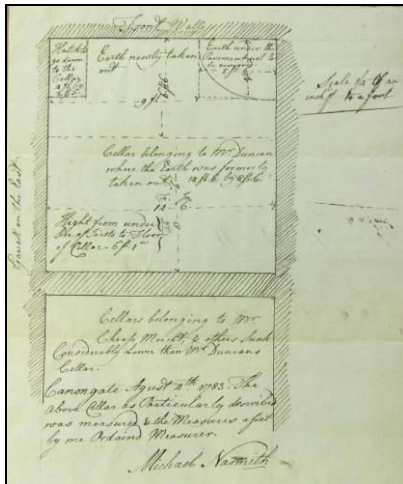 Front Wall
Hatch to
go down
to the
Cellar
Earth newly taken
out
Earth under the
Pavement not to
be removed
5 ft
9 ft 6
Scale 1/4 of an
inch to a foot
Cellar belonging to Mr Duncan
where the Earth was formerly
taken out
by 8 ft 6
Ft
14 6
Hight from under
side of Joists to Floor
of Cellar 6 ft 1 in
Cellars belonging to Mr
Cheap Mercht, & others Sunk
Considrably Lower than Mr Duncans
Cellar.
Canongate Agust 2th 1783. The
Above Cellar as Particularly described
was measured & the Measures afixed
by me Ordaind Measurer.
Michael Nasmith